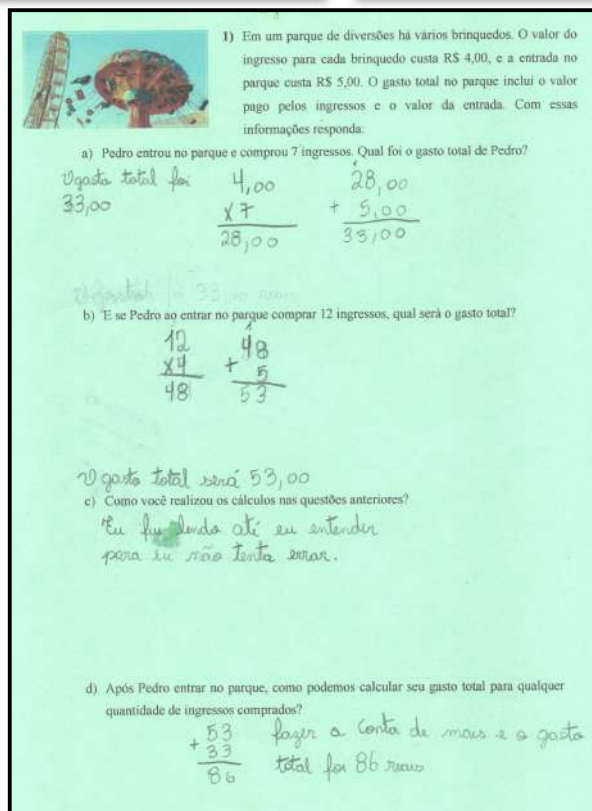 1) Em um parque de diversões há vários brinquedos. O valor do
ingresso para cada brinquedo custa R$ 4,00, e a entrada no
parque custa R$ 5,00. O gasto total no parque inclui o valor
pago pelos ingressos e o valor da entrada. Com essas
informações responda:
a) Pedro entrou no parque e comprou 7 ingressos. Qual foi o gasto total de Pedro?
O gasto total foi
33,00
4,00
x7
28,00
1
28,00
+ 5,00
33,00
33,00
b) E se Pedro ao entrar no parque comprar 12 ingressos, qual será o gasto total?
12
x4
48
1
48
+ 5
53
O gasto total será 53,00
c) Como você realizou os cálculos nas questões anteriores?
Eu fui lendo até eu entender
para eu não tenta errar.
d) Após Pedro entrar no parque, como podemos calcular seu gasto total para qualquer
quantidade de ingressos comprados?
53
+ 33
86
fazer a conta de mais e o gasto
total foi 86 reais